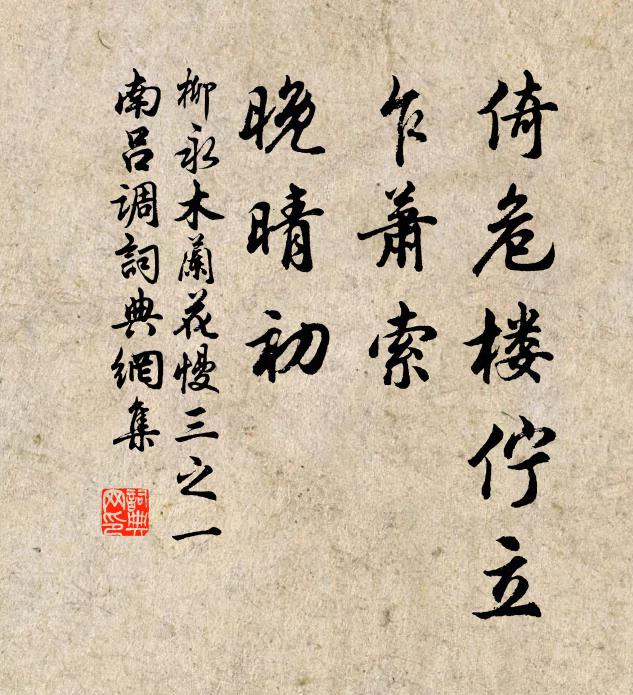 倚危楼伫立
乍萧索
晚晴初
柳永木蘭花慢三之一
南吕调詞典網集
詞典网印